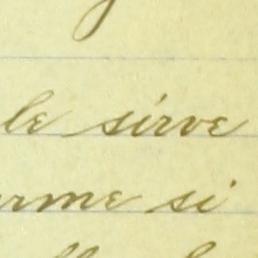 le sirve
rme si